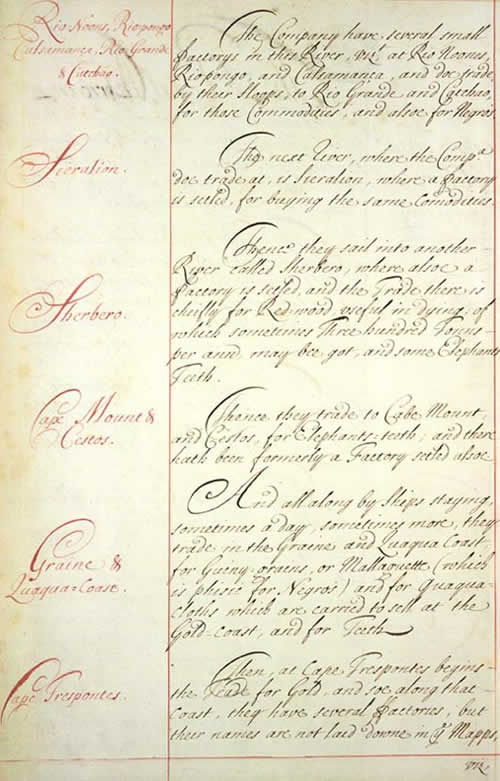 Rio Noons, Riopongo
Calsamanca, Rio Grande
& Catchao.
The Company have, several small
factorys in this River, vizt at Rio Noones,
Riopongo, and Calsamanca, and doe trade
by their Sloops, to Rio Grande and Catchao,
for those Commodities, and alsoe for Negros.
Sieralion.
The next River, where the Compa
doe trade at, is Sieralion, where a factory
is setled, for buying the same Comodities.
Sherbero.
Thence they sail into another
River called Sherbero, where alsoe a
factory is setled, and the Trade there is
cheifly for Redwood useful in dying, of
which sometimes Three hundred Tonns
per annu may bee got, and some Elephants
Teeth.
Cape Mount &
Cestos.
Thence they trade to Cabe Mount,
and Cestos, for Elephants-teeth; and there
hath been formerly a Factory setled alsoe
Graine &
Quaqua=Coast.
And all along by ships staying
sometimes a day, sometimes more, they
trade in the Graine and Quaqua Coast,
for Guiny-graens, or Mallaguette (which
is phisic for Negros) and for Quaqua-
cloths which are carried to sell at the
Gold-coast, and for Teeth
Cape Trespontes.
Then, at Cape Trespontes begins
the Trade for Gold, and soe along that
Coast, they have several factories, but
their names are not laid downe in ye Mapps,